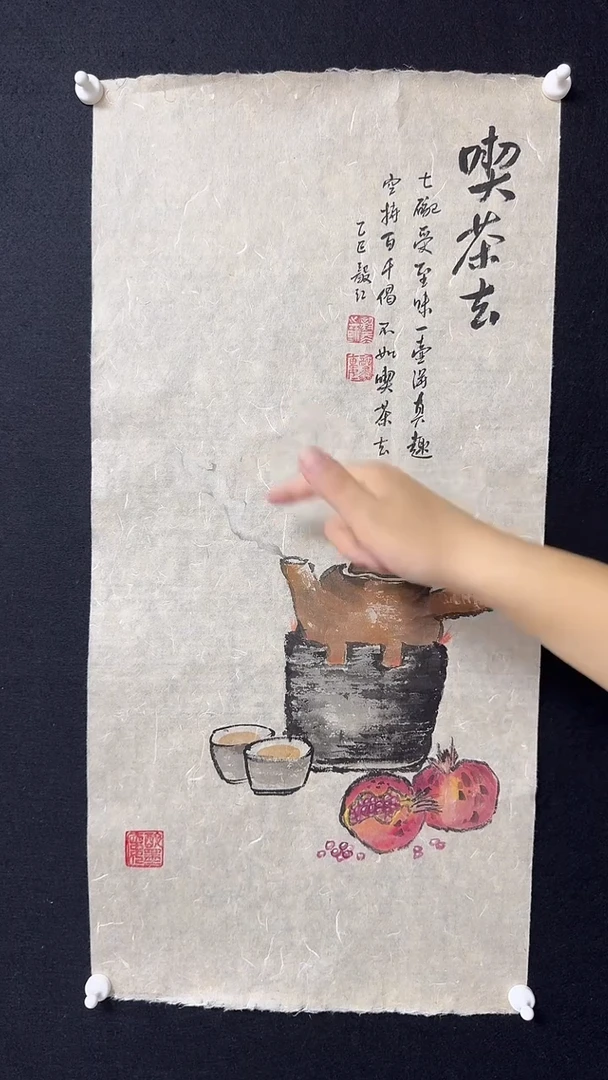 喫茶去
七碗受至味一壺得真趣
空持百千偈不如喫茶去
乙巳毅江